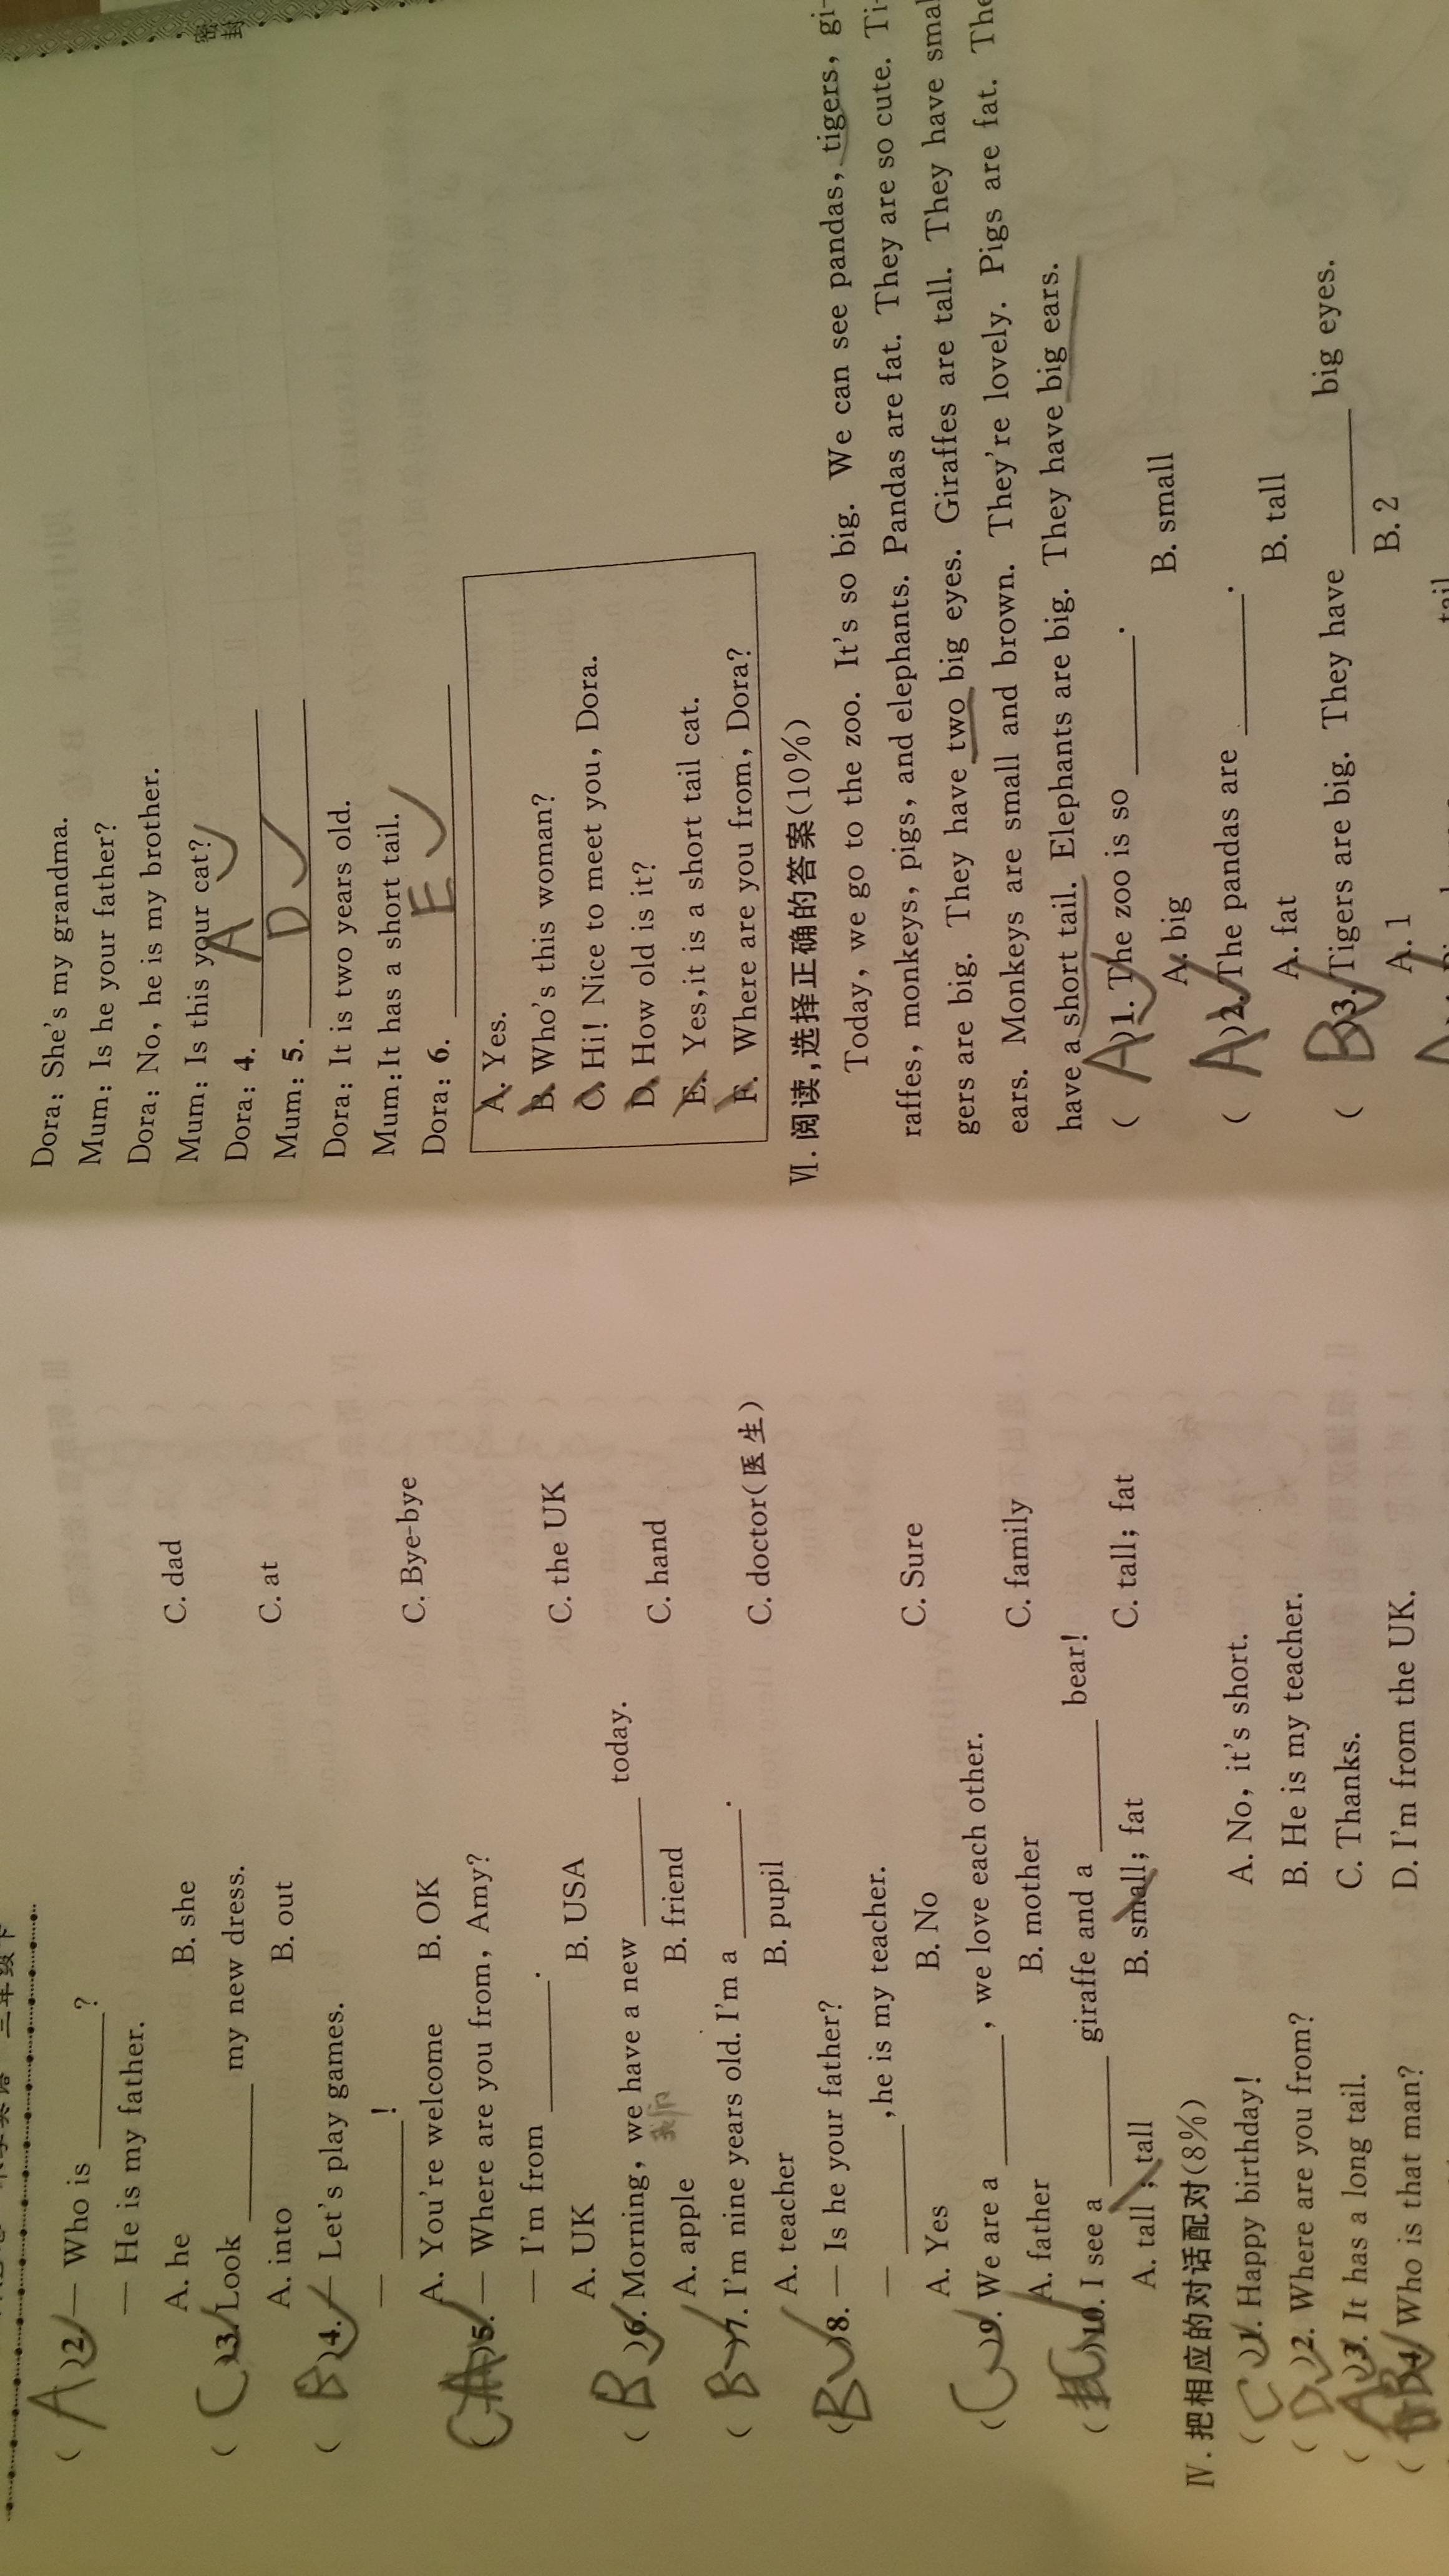 三年级下
(A)2. — Who is ______?
— He is my father.
A. he B. she C. dad
(C)3. Look ______ my new dress.
A. into B. out C. at
(B)4. — Let's play games.
— ______!
A. You're welcome B. OK C. Bye-bye
(C)5. — Where are you from, Amy?
— I'm from ______.
A. UK B. USA C. the UK
(B)6. Morning, we have a new ______ today.
我们
A. apple B. friend C. hand
(B)7. I'm nine years old. I'm a ______.
A. teacher B. pupil C. doctor(医生)
(B)8. — Is he your father?
— ______,he is my teacher.
A. Yes B. No C. Sure
(C)9. We are a ______, we love each other.
A. father B. mother C. family
(C)10. I see a ______ giraffe and a ______ bear!
A. tall; tall B. small; fat C. tall; fat
Ⅳ. 把相应的对话配对(8%)
(C)1. Happy birthday! A. No, it's short.
(D)2. Where are you from? B. He is my teacher.
(A)3. It has a long tail. C. Thanks.
(B)4. Who is that man? D. I'm from the UK.
密封
Dora: She's my grandma.
Mum: Is he your father?
Dora: No, he is my brother.
Mum: Is this your cat?
Dora: 4. A
Mum: 5. D
Dora: It is two years old.
Mum: It has a short tail.
Dora: 6. E
A. Yes.
B. Who's this woman?
C. Hi! Nice to meet you, Dora.
D. How old is it?
E. Yes,it is a short tail cat.
F. Where are you from, Dora?
Ⅵ. 阅读,选择正确的答案(10%)
Today, we go to the zoo. It's so big. We can see pandas, tigers, gi-
raffes, monkeys, pigs, and elephants. Pandas are fat. They are so cute. Ti-
gers are big. They have two big eyes. Giraffes are tall. They have smal
ears. Monkeys are small and brown. They're lovely. Pigs are fat. The
have a short tail. Elephants are big. They have big ears.
(A)1. The zoo is so ______.
A. big B. small
(A)2. The pandas are ______.
A. fat B. tall
(B)3. Tigers are big. They have ______ big eyes.
A. 1 B. 2
tail